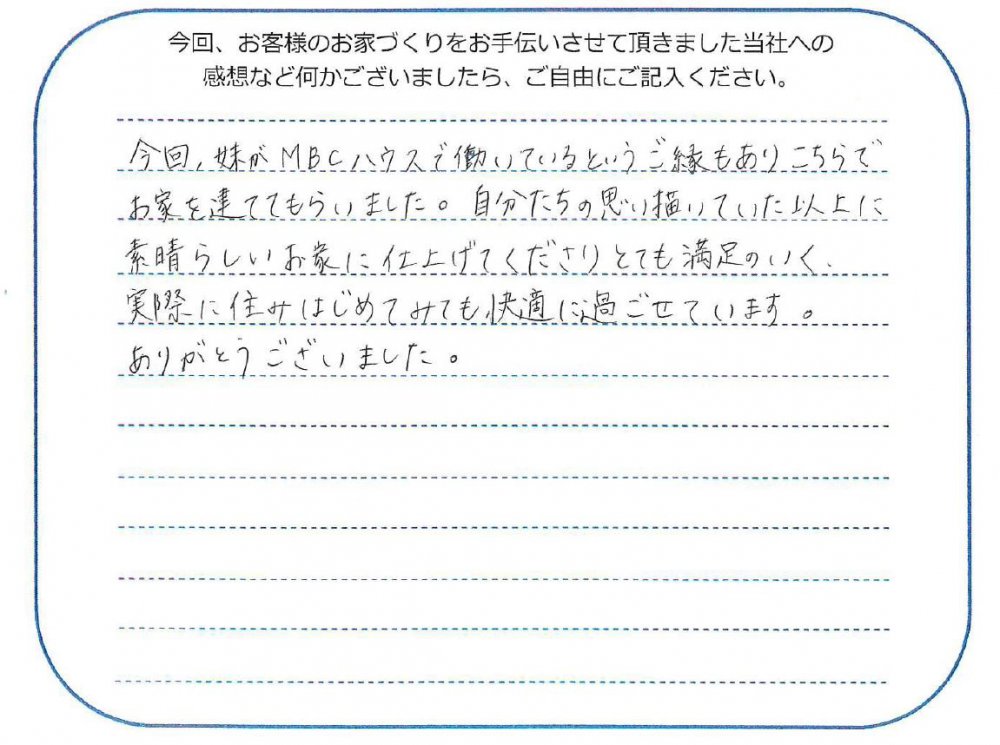 今回、お客様のお家づくりをお手伝いさせて頂きました当社への
感想など何かございましたら、ご自由にご記入ください。
今回、妹がMBCハウスで働いているというご縁もありこちらで
お家を建ててもらいました。自分たちの思い描いていた以上に
素晴らしいお家に仕上げてくださりとても満足のいく、
実際に住みはじめてみても快適に過ごせています。
ありがとうございました。